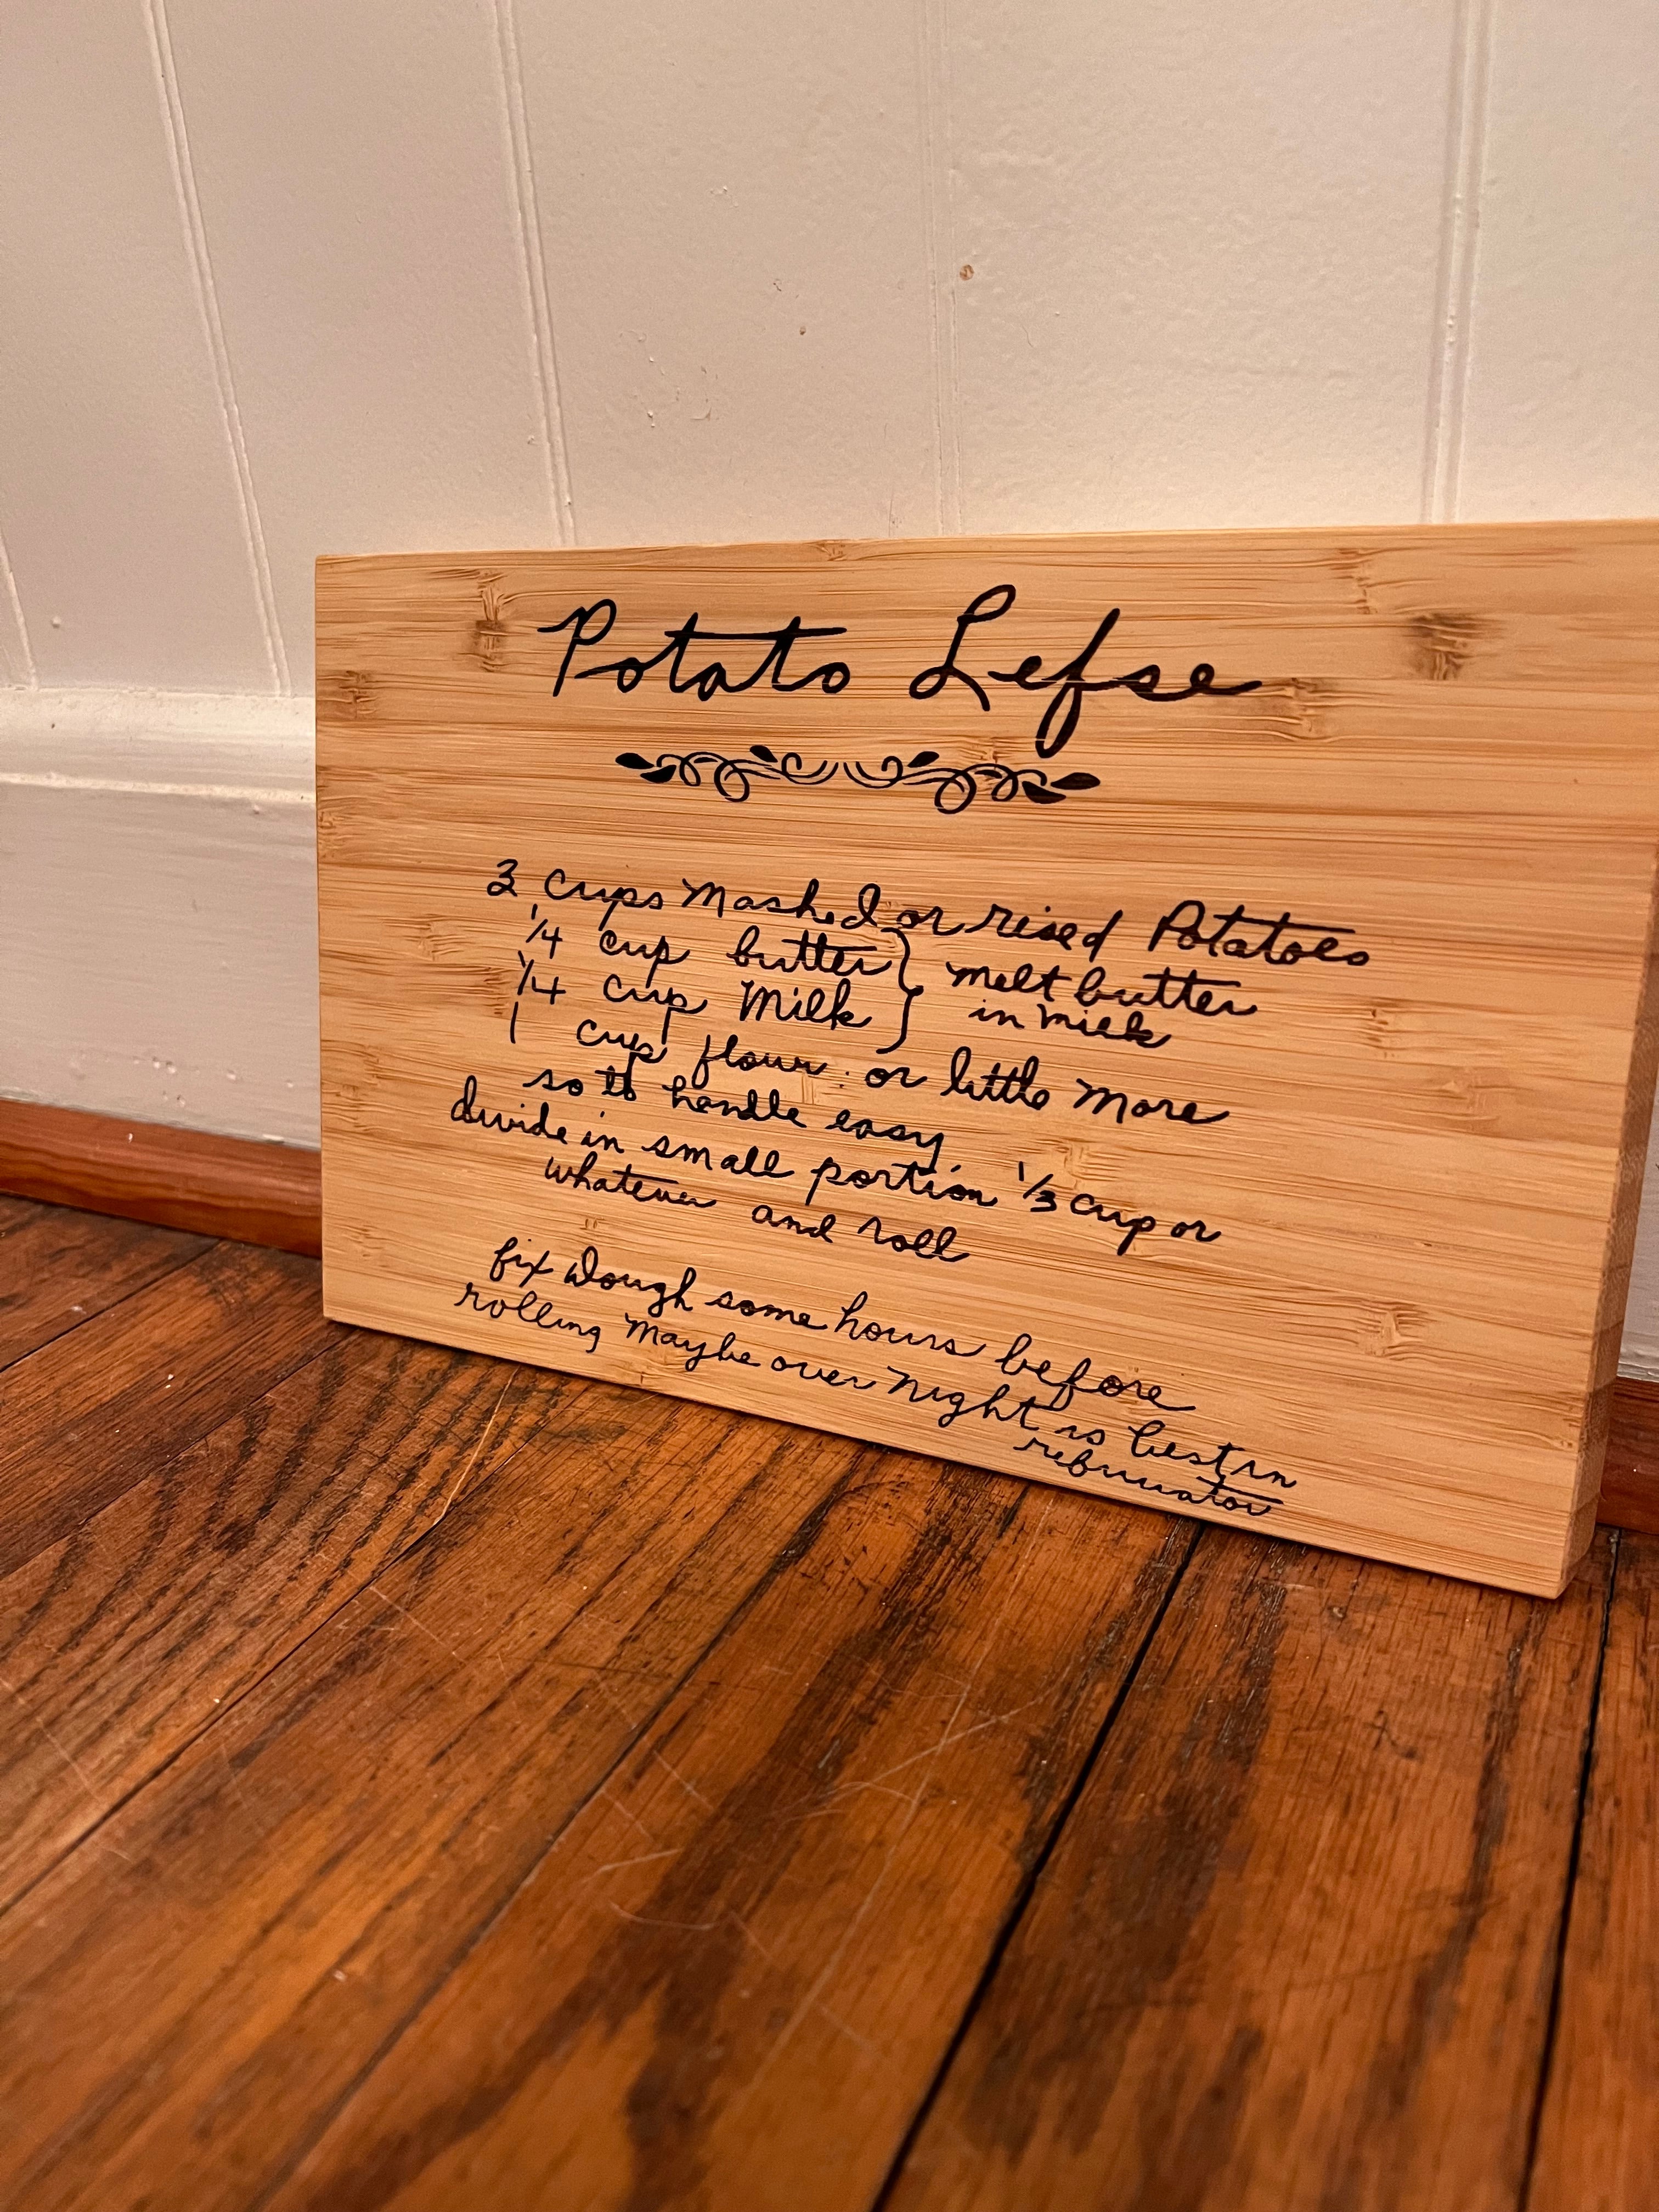 Potato Lefse
3 cups Mashed or rised Potatoes
1/4 cup butter } melt butter
1/4 cup Milk } in milk
1 cup flour. or little more
so to handle easy
divide in small portion 1/3 cup or
whatever and roll
fix dough some hours before
rolling Maybe over night is best in